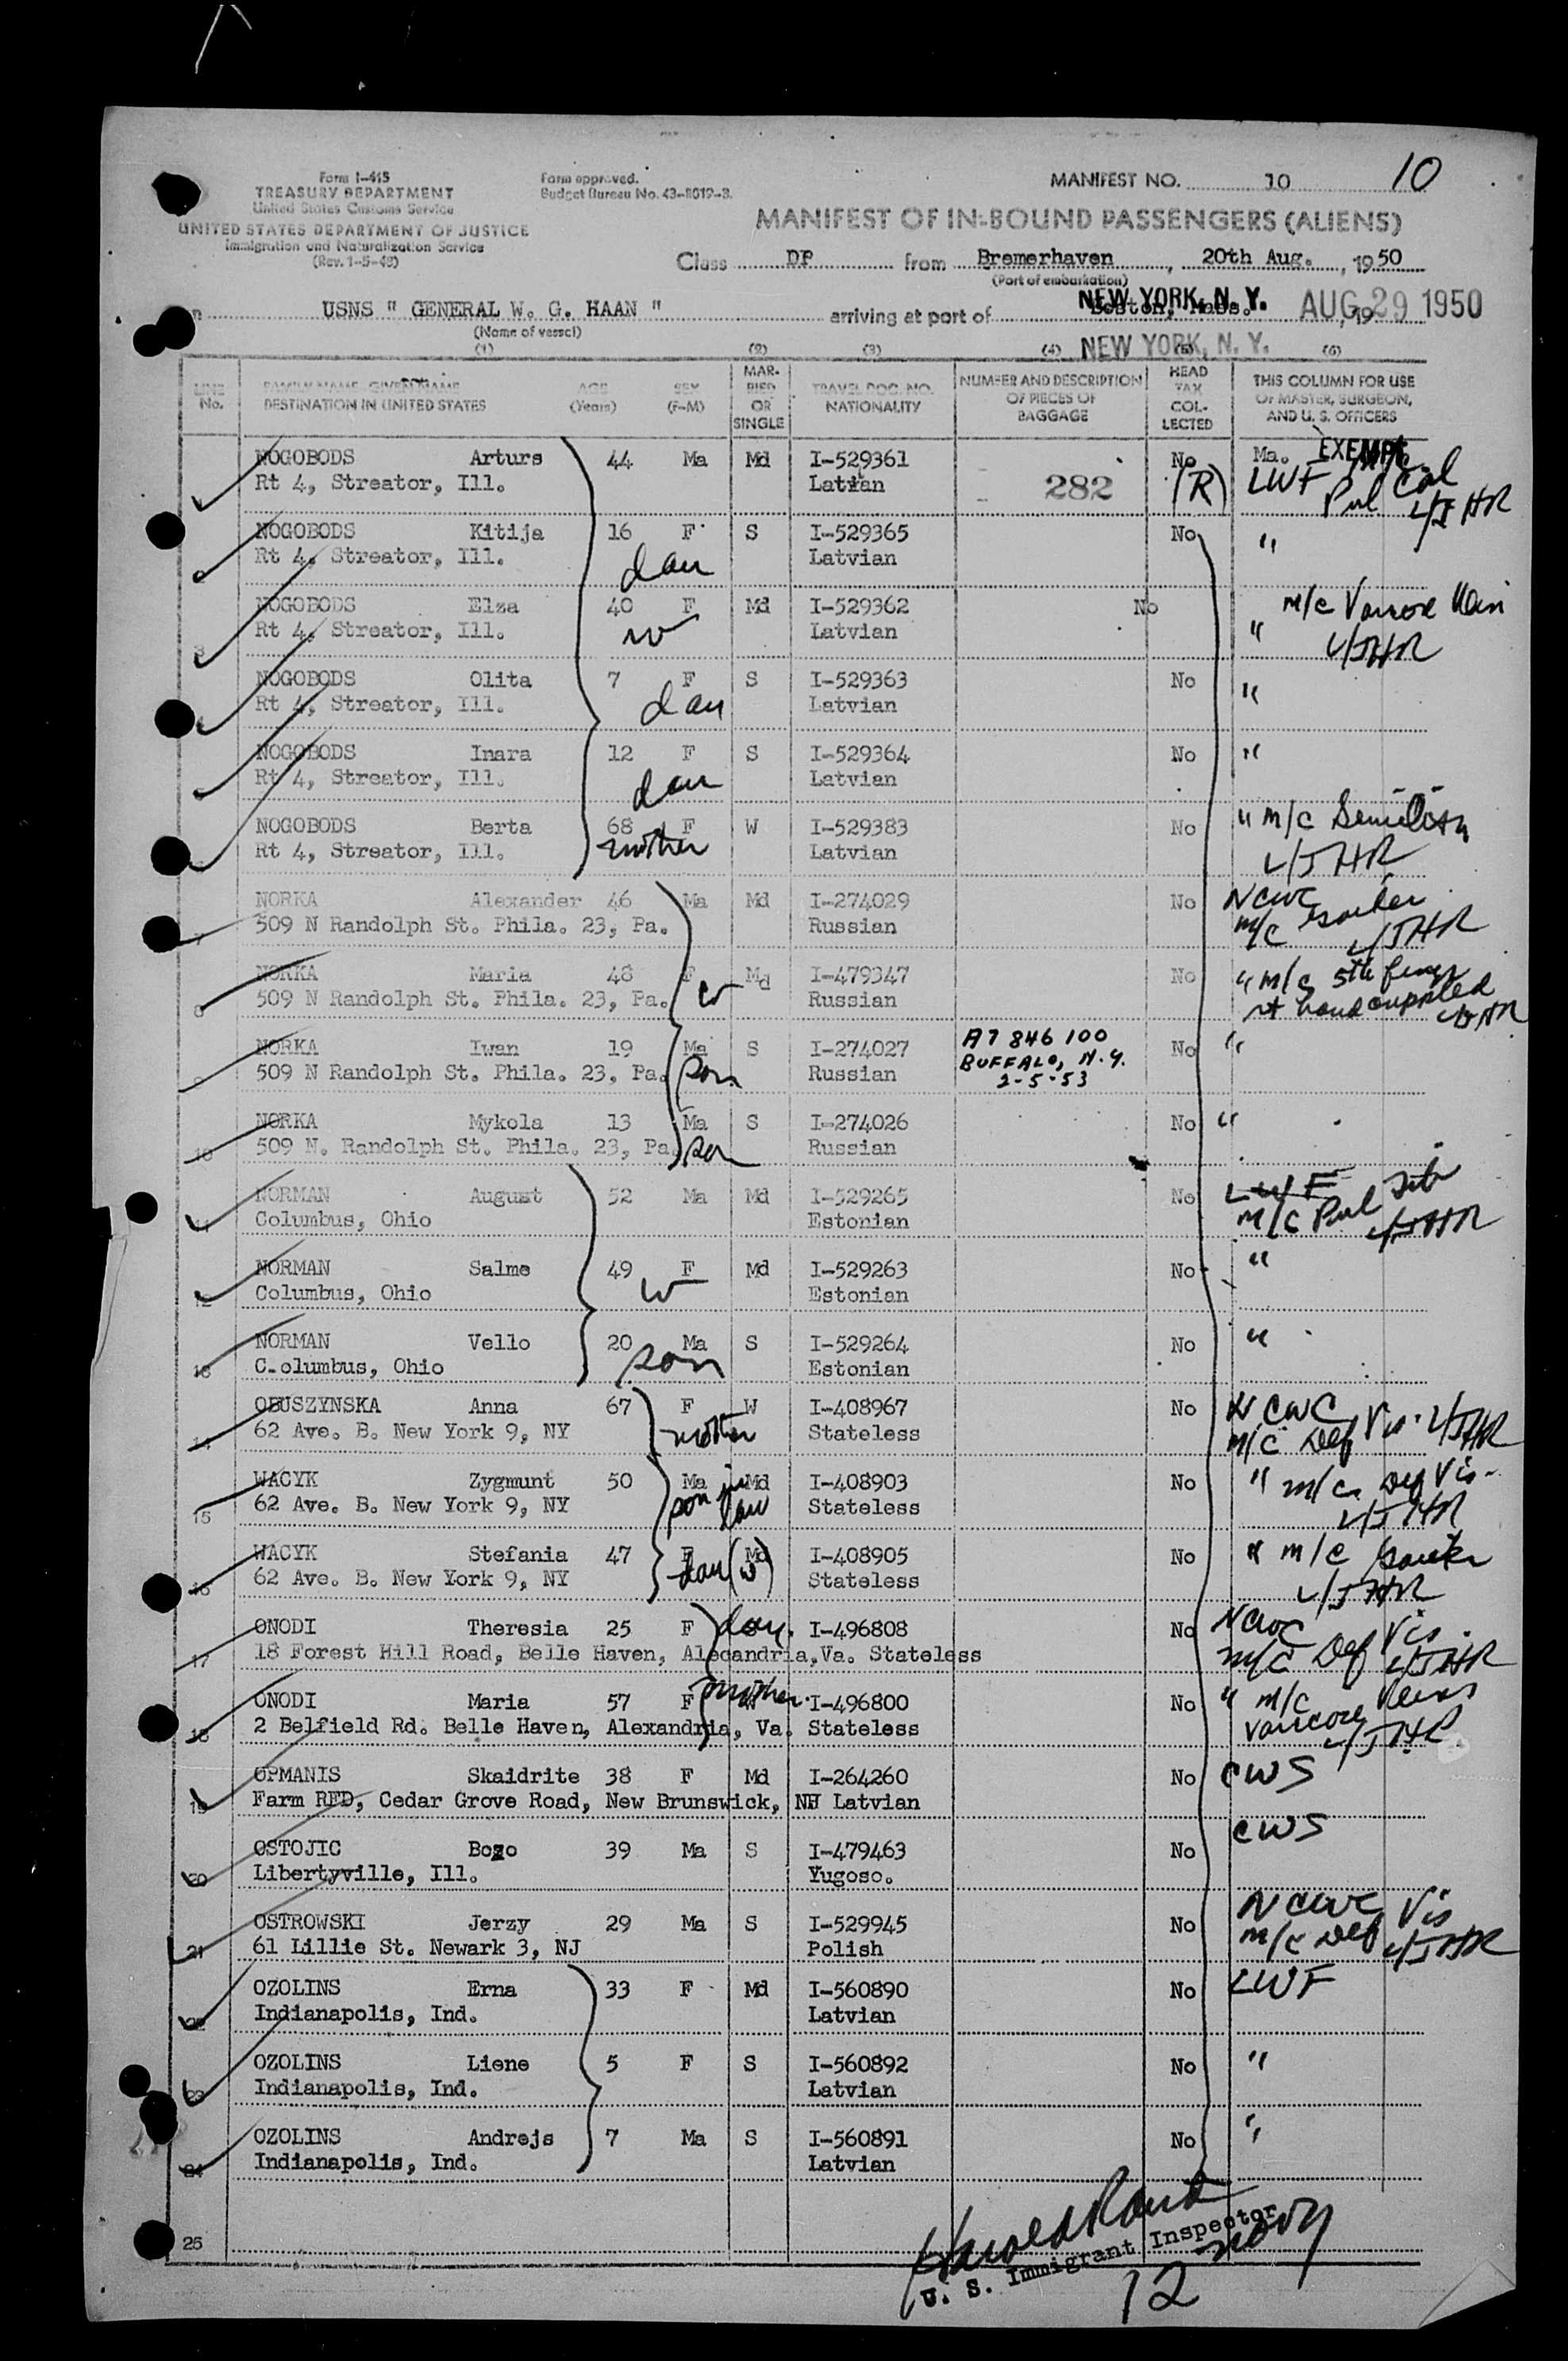 10
Form I-415
TREASURY DEPARTMENT
United States Customs Service
UNITED STATES DEPARTMENT OF JUSTICE
Immigration and Naturalization Service
(Rev. 1-5-48)
Form approved.
Budget Bureau No. 43-R019-3.
MANIFEST NO. 10
MANIFEST OF IN-BOUND PASSENGERS (ALIENS)
Class DP from Bremerhaven, 20th Aug., 1950
(Port of embarkation)
USNS " GENERAL W. G. HAAN " arriving at port of Boston, Mass. NEW YORK, N. Y. AUG 29 1950, 19
(Name of vessel)
NEW YORK, N. Y.
(1) (2) (3) (4) (5) (6)
LINE No.
FAMILY NAME—GIVEN NAME
DESTINATION IN UNITED STATES
AGE (Years)
SEX (F-M)
MAR-RIED OR SINGLE
TRAVEL DOC. NO. NATIONALITY
NUMBER AND DESCRIPTION OF PIECES OF BAGGAGE
HEAD TAX COL-LECTED
THIS COLUMN FOR USE OF MASTER, SURGEON, AND U. S. OFFICERS
NOGOBODS Arturs 44 Ma Md I-529361 No Ma. EXEMPT
Rt 4, Streator, Ill. Latvian 282 (R) LWF Pul Cal L/JHR
2 NOGOBODS Kitija 16 F S I-529365 No "
Rt 4, Streator, Ill. dau Latvian
3 NOGOBODS Elza 40 F Md I-529362 No " m/c
Rt 4, Streator, Ill. w Latvian L/JHR
NOGOBODS Olita 7 F S I-529363 No "
Rt 4, Streator, Ill. dau Latvian
NOGOBODS Inara 12 F S I-529364 No "
Rt 4, Streator, Ill. dau Latvian
NOGOBODS Berta 68 F W I-529383 No " m/c
Rt 4, Streator, Ill. mother Latvian L/JHR
NORKA Alexander 46 Ma Md I-274029 No NCWC
7 509 N Randolph St. Phila. 23, Pa. Russian m/c L/JHR
NORKA Maria 48 F Md I-479347 No " m/c 5th finger
8 509 N Randolph St. Phila. 23, Pa. w Russian rt hand crippled L/JHR
NORKA Iwan 19 Ma S I-274027 A7 846 100 No "
9 509 N Randolph St. Phila. 23, Pa. son Russian BUFFALO, N.Y.
2-5-53
NORKA Mykola 13 Ma S I-274026 No "
10 509 N. Randolph St. Phila. 23, Pa son Russian
NORMAN August 52 Ma Md I-529265 No LWF
11 Columbus, Ohio Estonian m/c Pul L/JHR
NORMAN Salme 49 F Md I-529263 No "
12 Columbus, Ohio w Estonian
NORMAN Vello 20 Ma S I-529264 No "
13 C.olumbus, Ohio son Estonian
OBUSZYNSKA Anna 67 F W I-408967 No NCWC
14 62 Ave. B. New York 9, NY mother Stateless m/c Def Vis. L/JHR
WACYK Zygmunt 50 Ma Md I-408903 No " m/c Def Vis.
15 62 Ave. B. New York 9, NY son in law Stateless L/JHR
WACYK Stefania 47 F Md I-408905 No " m/c
16 62 Ave. B. New York 9, NY dau (w) Stateless L/JHR
ONODI Theresia 25 F dau. I-496808 No NCWC
17 18 Forest Hill Road, Belle Haven, Alecandria,Va. Stateless m/c Def Vis. L/JHR
ONODI Maria 57 F mother. W I-496800 No " m/c
18 2 Belfield Rd. Belle Haven, Alexandria, Va. Stateless L/JHR
OPMANIS Skaidrite 38 F Md I-264260 No CWS
19 Farm RFD, Cedar Grove Road, New Brunswick, NH Latvian
OSTOJIC Bozo 39 Ma S I-479463 No CWS
20 Libertyville, Ill. Yugoso.
OSTROWSKI Jerzy 29 Ma S I-529945 No NCWC
21 61 Lillie St. Newark 3, NJ Polish m/c Def Vis L/JHR
OZOLINS Erna 33 F Md I-560890 No LWF
22 Indianapolis, Ind. Latvian
OZOLINS Liene 5 F S I-560892 No "
23 Indianapolis, Ind. Latvian
OZOLINS Andrejs 7 Ma S I-560891 No "
24 Indianapolis, Ind. Latvian
25
U. S. Immigrant Inspector
12